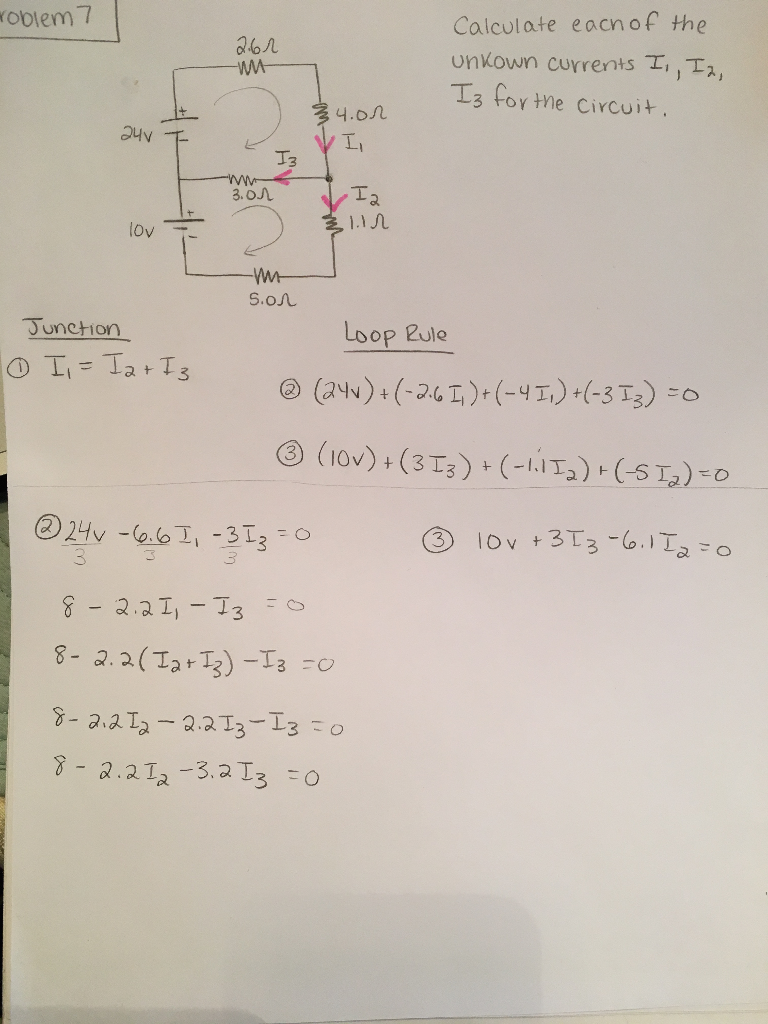 roblem 7
Calculate each of the
unkown currents I₁, I₂,
I₃ for the circuit.
2.6Ω
4.0Ω
+
24v
-
I₁
I₃
3.0Ω
I₂
+
10v
-
1.1Ω
5.0Ω
Junction
Loop Rule
① I₁ = I₂ + I₃
② (24v) + (-2.6 I₁) + (-4 I₁) + (-3 I₃) = 0
③ (10v) + (3 I₃) + (-1.1 I₂) + (-5 I₂) = 0
② 24v - 6.6 I₁ - 3 I₃ = 0
3 3 3
③ 10v + 3I₃ - 6.1 I₂ = 0
8 - 2.2 I₁ - I₃ = 0
8 - 2.2 (I₂ + I₃) - I₃ = 0
8 - 2.2 I₂ - 2.2 I₃ - I₃ = 0
8 - 2.2 I₂ - 3.2 I₃ = 0